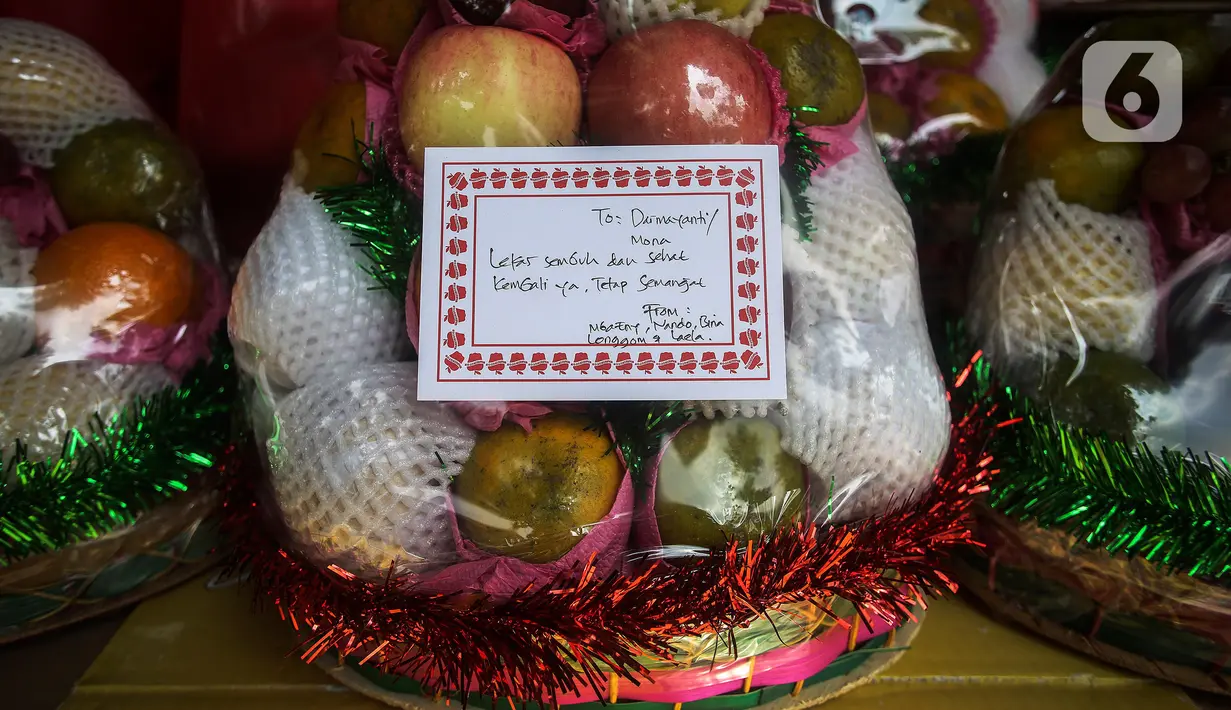 6
To: Darmayanti/
Mona
Lekas sembuh dan sehat
kembali ya, Tetap Semangat
From:
Mba Eny, Nando, Bina
Longgom & Laela.